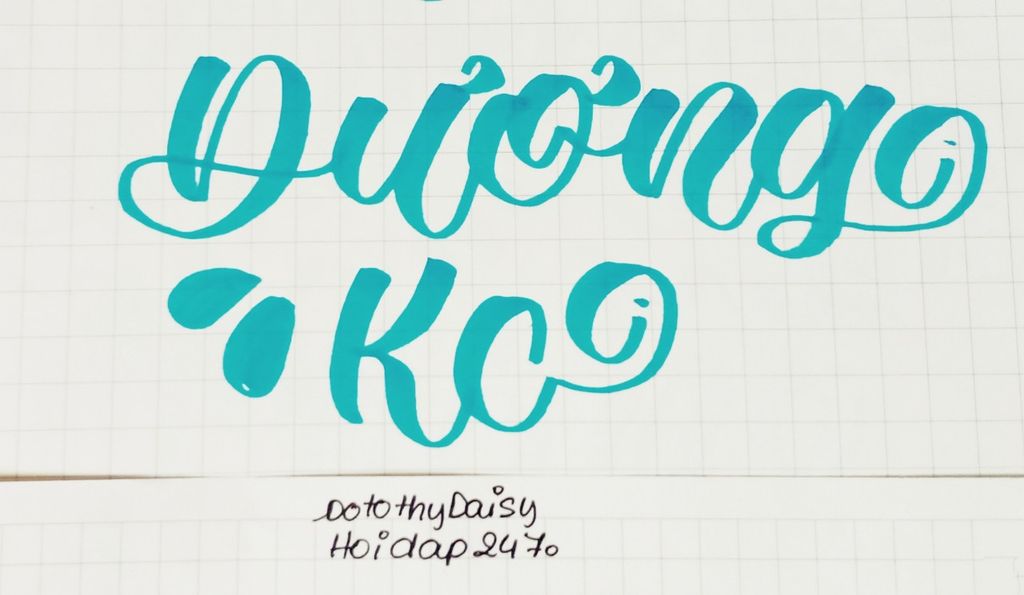 Dương
Kc
DotothyDaisy
Hoidap247.